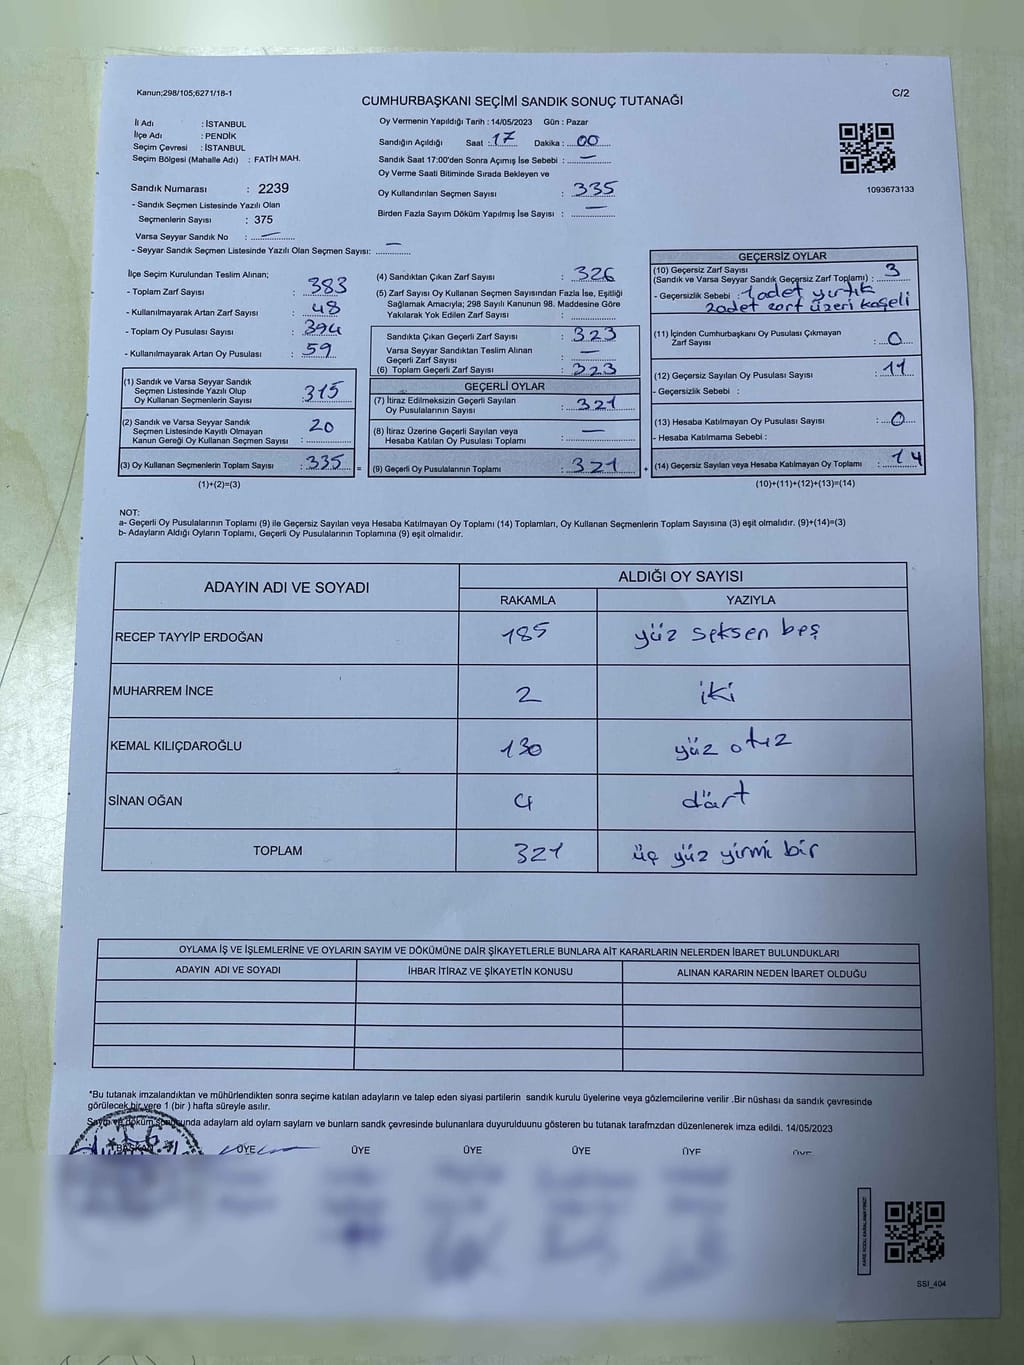 Kanun;298/105;6271/18-1
C/2
CUMHURBAŞKANI SEÇİMİ SANDIK SONUÇ TUTANAĞI
İl Adı : İSTANBUL
İlçe Adı : PENDİK
Seçim Çevresi : İSTANBUL
Seçim Bölgesi (Mahalle Adı) : FATİH MAH.
Oy Vermenin Yapıldığı Tarih : 14/05/2023 Gün : Pazar
Sandığın Açıldığı Saat : 17 Dakika : 00
Sandık Saat 17:00'den Sonra Açımış İse Sebebi : —
Oy Verme Saati Bitiminde Sırada Bekleyen ve
Oy Kullandırılan Seçmen Sayısı : 335
Birden Fazla Sayım Döküm Yapılmış İse Sayısı : —
1093673133
Sandık Numarası : 2239
- Sandık Seçmen Listesinde Yazılı Olan
Seçmenlerin Sayısı : 375
Varsa Seyyar Sandık No : —
- Seyyar Sandık Seçmen Listesinde Yazılı Olan Seçmen Sayısı: —
İlçe Seçim Kurulundan Teslim Alınan;
- Toplam Zarf Sayısı : 383
- Kullanılmayarak Artan Zarf Sayısı : 48
- Toplam Oy Pusulası Sayısı : 394
- Kullanılmayarak Artan Oy Pusulası : 59
(1) Sandık ve Varsa Seyyar Sandık
Seçmen Listesinde Yazılı Olup
Oy Kullanan Seçmenlerin Sayısı : 315
(2) Sandık ve Varsa Seyyar Sandık
Seçmen Listesinde Kayıtlı Olmayan
Kanun Gereği Oy Kullanan Seçmen Sayısı : 20
(3) Oy Kullanan Seçmenlerin Toplam Sayısı : 335 =
(1)+(2)=(3)
(4) Sandıktan Çıkan Zarf Sayısı : 326
(5) Zarf Sayısı Oy Kullanan Seçmen Sayısından Fazla İse, Eşitliği
Sağlamak Amacıyla; 298 Sayılı Kanunun 98. Maddesine Göre
Yakılarak Yok Edilen Zarf Sayısı :
Sandıkta Çıkan Geçerli Zarf Sayısı : 323
Varsa Seyyar Sandıktan Teslim Alınan
Geçerli Zarf Sayısı : —
(6) Toplam Geçerli Zarf Sayısı : 323
GEÇERLİ OYLAR
(7) İtiraz Edilmeksizin Geçerli Sayılan
Oy Pusulalarının Sayısı : 321
(8) İtiraz Üzerine Geçerli Sayılan veya
Hesaba Katılan Oy Pusulası Toplamı : —
(9) Geçerli Oy Pusulalarının Toplamı : 321 +
GEÇERSİZ OYLAR
(10) Geçersiz Zarf Sayısı
(Sandık ve Varsa Seyyar Sandık Geçersiz Zarf Toplamı) : 3
- Geçersizlik Sebebi : 1 adet yırtık
2 adet zarf üzeri kaşeli
(11) İçinden Cumhurbaşkanı Oy Pusulası Çıkmayan
Zarf Sayısı : 0
(12) Geçersiz Sayılan Oy Pusulası Sayısı : 11
- Geçersizlik Sebebi :
(13) Hesaba Katılmayan Oy Pusulası Sayısı : 0
- Hesaba Katılmama Sebebi :
(14) Geçersiz Sayılan veya Hesaba Katılmayan Oy Toplamı : 14
(10)+(11)+(12)+(13)=(14)
NOT:
a- Geçerli Oy Pusulalarının Toplamı (9) ile Geçersiz Sayılan veya Hesaba Katılmayan Oy Toplamı (14) Toplamları, Oy Kullanan Seçmenlerin Toplam Sayısına (3) eşit olmalıdır. (9)+(14)=(3)
b- Adayların Aldığı Oyların Toplamı, Geçerli Oy Pusulalarının Toplamına (9) eşit olmalıdır.
ADAYIN ADI VE SOYADI ALDIĞI OY SAYISI
RAKAMLA YAZIYLA
RECEP TAYYİP ERDOĞAN 185 yüz seksen beş
MUHARREM İNCE 2 iki
KEMAL KILIÇDAROĞLU 130 yüz otuz
SİNAN OĞAN 4 dört
TOPLAM 321 üç yüz yirmi bir
OYLAMA İŞ VE İŞLEMLERİNE VE OYLARIN SAYIM VE DÖKÜMÜNE DAİR ŞİKAYETLERLE BUNLARA AİT KARARLARIN NELERDEN İBARET BULUNDUKLARI
ADAYIN ADI VE SOYADI İHBAR İTİRAZ VE ŞİKAYETİN KONUSU ALINAN KARARIN NEDEN İBARET OLDUĞU
*Bu tutanak imzalandıktan ve mühürlendikten sonra seçime katılan adayların ve talep eden siyasi partilerin sandık kurulu üyelerine veya gözlemcilerine verilir .Bir nüshası da sandık çevresinde
görülecek bir yere 1 (bir ) hafta süreyle asılır.
Sayım ve döküm sonucunda adayların ald oyların saylam ve bunların sandk çevresinde bulunanlara duyurulduunu gösteren bu tutanak tarafmzdan düzenlenerek imza edildi. 14/05/2023
BAŞKAN ÜYE ÜYE ÜYE ÜYE ÜYE ÜYE
KARE KODU KARALAMAYINIZ!
SSI_404